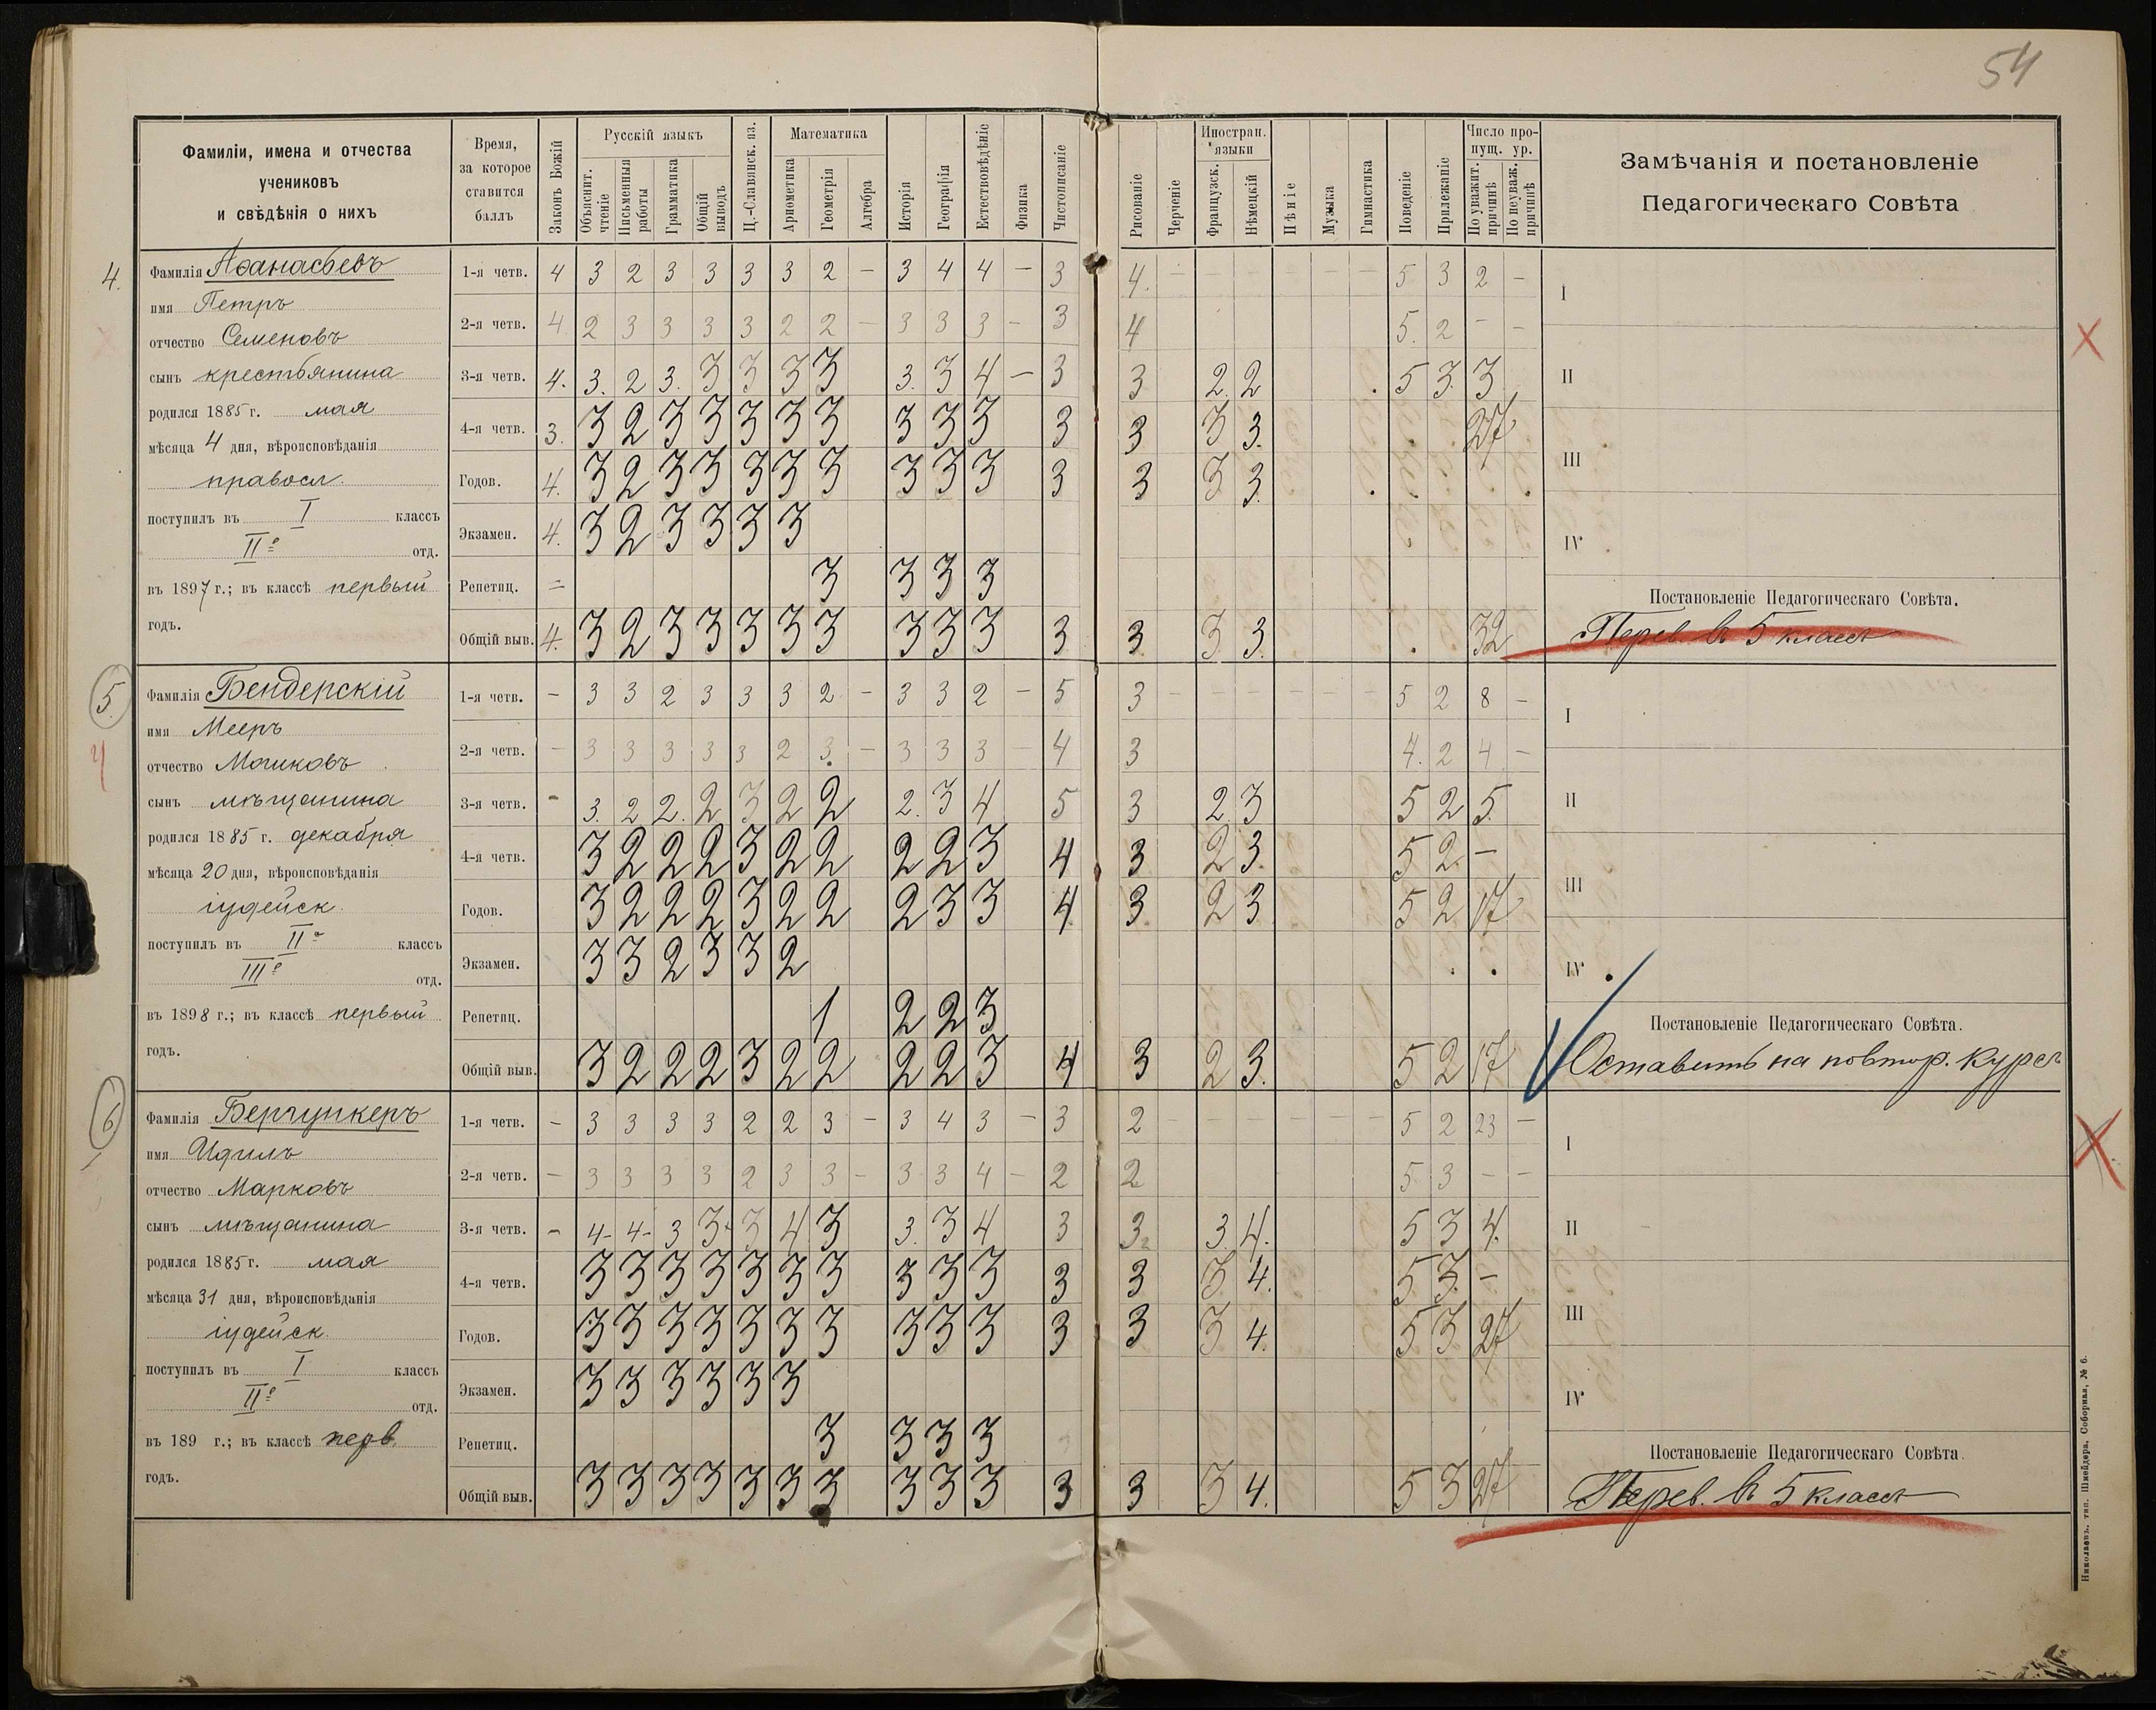 54
Фамиліи, имена и отчества
учениковъ
и свѣдѣнія о нихъ
Время,
за которое
ставится
баллъ
Законъ Божій
Русскій языкъ
Объяснит. чтеніе
Письменныя работы
Грамматика
Общій выводъ
Ц.-Славянск. яз.
Математика
Ариѳметика
Геометрія
Алгебра
Исторія
Географія
Естествовѣдѣніе
Физика
Чистописаніе
Рисованіе
Черченіе
Иностран. языки
Французск.
Нѣмецкій
Пѣніе
Музыка
Гимнастика
Поведеніе
Прилежаніе
Число пропущ. ур.
По уважит. причинѣ
По неуваж. причинѣ
Замѣчанія и постановленіе
Педагогическаго Совѣта
4.
Фамилія Аѳанасьевъ
имя Петръ
отчество Семеновъ
сынъ крестьянина
родился 1885 г. мая
мѣсяца 4 дня, вѣроисповѣданія
правосл.
поступилъ въ I классъ
IIе отд.
въ 1897 г.; въ классѣ первый
годъ.
1-я четв. 4 3 2 3 3 3 3 2 — 3 4 4 — 3 4. — — — — — — 5 3 2 —
2-я четв. 4 2 3 3 3 3 2 2 — 3 3 3 — 3 4 5. 2 — —
3-я четв. 4. 3. 2 3. 3 3 3 3 3. 3 4 — 3 3 2. 2 5 3. 3
4-я четв. 3. 3 2 3 3 3 3 3 3 3 3 3 3 3 3. 27
Годов. 4. 3 2 3 3 3 3 3 3 3 3 3 3 3 3.
Экзамен. 4. 3 2 3 3 3 3
Репетиц. — 3 3 3 3
Общій выв. 4. 3 2 3 3 3 3 3 3 3 3 3 3. 3 3. 32
I
II
III
IV
Постановленіе Педагогическаго Совѣта.
Перев. въ 5 классъ
5.
Фамилія Бендерскій
имя Мееръ
отчество Мошковъ
сынъ мѣщанина
родился 1885 г. декабря
мѣсяца 20 дня, вѣроисповѣданія
іудейск.
поступилъ въ IIе классъ
IIIе отд.
въ 1898 г.; въ классѣ первый
годъ.
1-я четв. — 3 3 2 3 3 3 2 — 3 3 2 — 5 3 — — — — — — 5 2 8 —
2-я четв. — 3 3 3 3 3 2 3. — 3 3 3 — 4 3 4. 2 4 —
3-я четв. - 3. 2 2. 2 3 2 2 2. 3 4 5 3 2. 3 5 2 5.
4-я четв. 3 2 2 2 3 2 2 2 2 3 4 3 2 3. 5 2. —
Годов. 3 2 2 2 3 2 2 2 3 3 4. 3. 2 3 5 2. 17
Экзамен. 3 3 2 3 3 2
Репетиц. 1 2 2 3
Общій выв. 3 2 2 2 3 2 2 2 2 3 4 3 2 3. 5 2 17
I
II
III
IV
Постановленіе Педагогическаго Совѣта.
Оставить на повтор. курсъ
6
Фамилія Берчункеръ
имя Идиль
отчество Марковъ
сынъ мѣщанина
родился 1885 г. мая
мѣсяца 31 дня, вѣроисповѣданія
іудейск.
поступилъ въ I классъ
IIе отд.
въ 189 г.; въ классѣ перв.
годъ.
1-я четв. — 3 3 3 3 2 2 3 — 3 4 3 — 3 2 — — — — — — 5 2 23 —
2-я четв. — 3 3 3 3 2 3 3 — 3 3 4 — 2 2 5 3 — —
3-я четв. - 4- 4- 3 3 3 4 3 3. 3 4 3 3 3. 4. 5 3 4.
4-я четв. 3 3 3 3 3 3 3 3 3 3 3 3 3 4. 5 3 —
Годов. 3 3 3 3 3 3 3 3 3 3 3 3 3 4. 5 3 27
Экзамен. 3 3 3 3 3 3
Репетиц. 3 3 3 3
Общій выв. 3 3 3 3 3 3 3 3 3 3 3 3 3 4. 5 3 27
I
II
III
IV
Постановленіе Педагогическаго Совѣта.
Перев. въ 5 классъ
Николаевъ, тип. Шнейдера, Соборная, № 6.